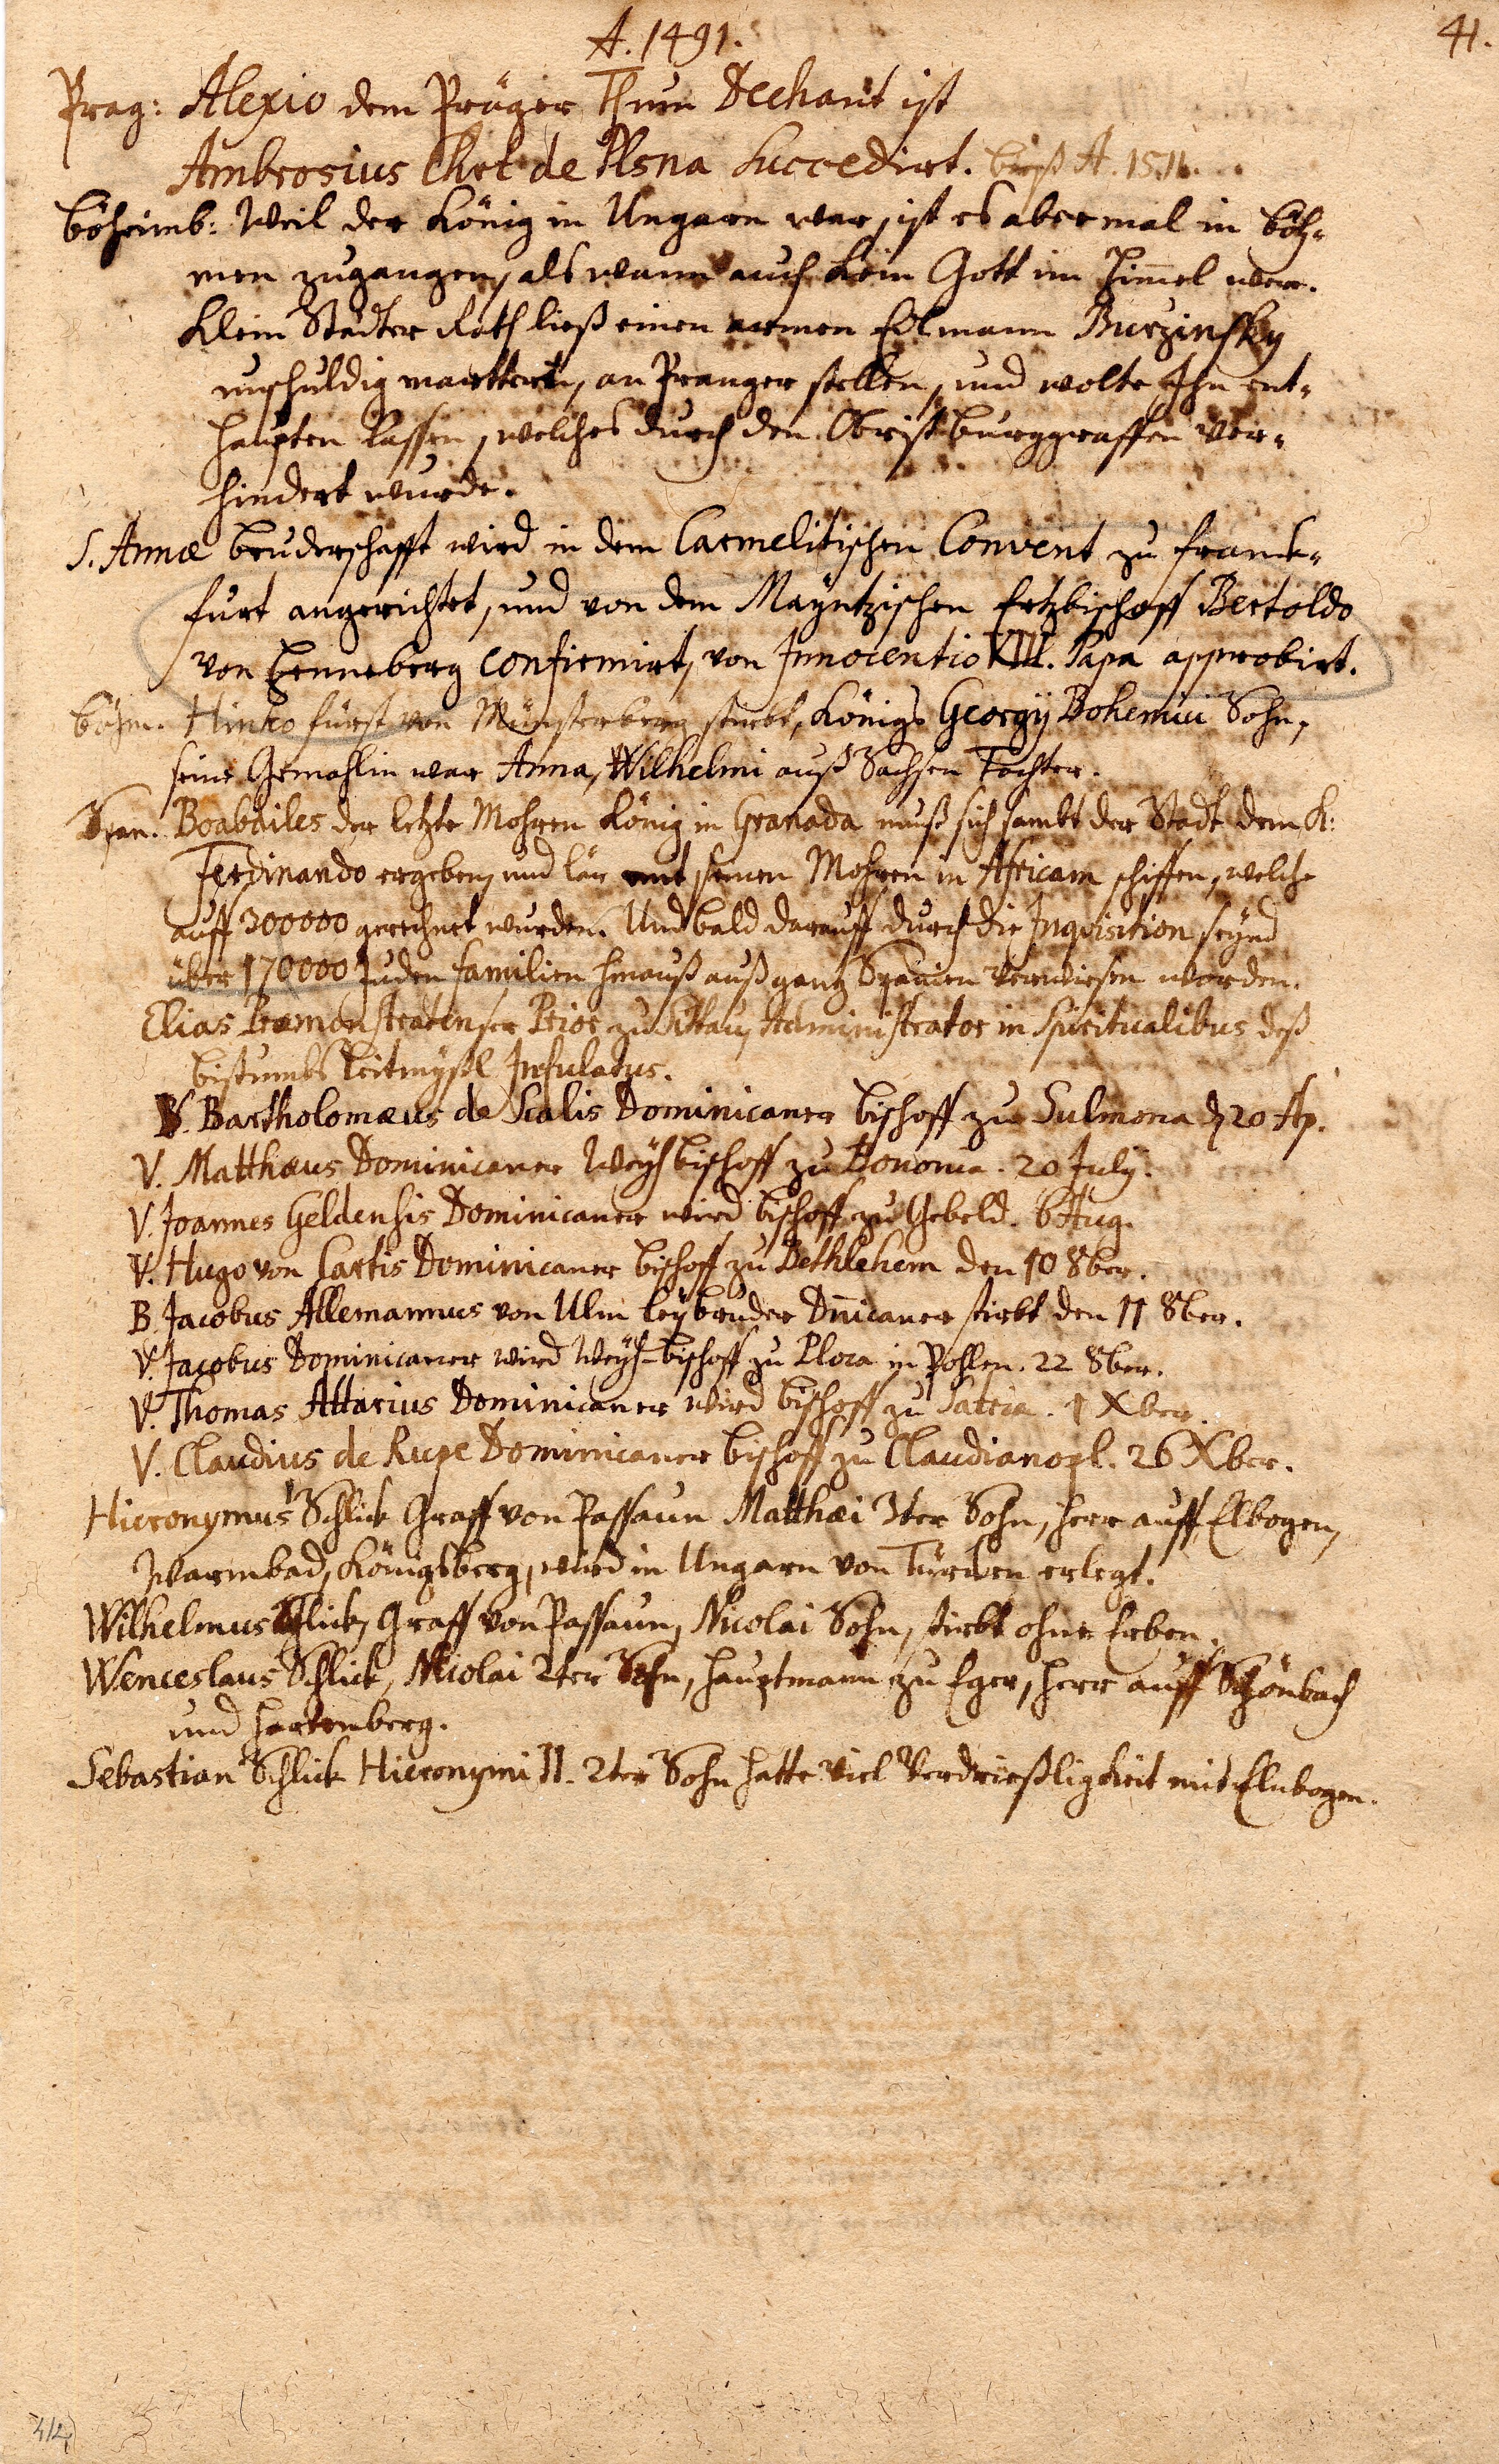 A. 1491.
41.
Prag: Alexio dem Präger Thum Dechant ist
Ambrosius Chrt de Plsna Succedirt. biß A. 1511.
Böheimb: Weil der König in Ungarn war, ist es abermal in Böh-
men zugangen, als wann auch kein Gott im Himel were.
Klein Städter Rath ließ einen armen Edlmann Burzinsky
unschuldig marttern, an Pranger stellen, und wolte Ihn ent-
haupten lassen, welches durch den Obrist burggraffen ver-
hindert wurde.
S. Annæ bruderschafft wird in dem Carmelitischen Convent zu franck-
furt angerichtet, und von dem Mayntzischen Ertzbischoff Bertoldo
von Henneberg confirmirt, von Innocentio VIII. Papa approbirt.
Böhm. Hinko fürst von Münsterberg stirbt, Königs Georgij Bohemici Sohn,
seine Gemahlin war Anna, Wilhelmi auß Sachsen Tochter.
Span. Boabdiles der letzte Mohren König in Granada muß sich sambt der Stadt dem K:
Ferdinando ergeben, und mit seinen Mohren in Africam schiffen, welche
auff 300000 gerechnet wurden. Und bald darauff durch die Inquisition seynd
über 170000 Juden familien hinauß auß gantz Spanien verwiesen worden.
Elias Præmonstratenser Prior zu Administrator in Spiritualibus deß
bistumbs Leitmyßl Infulatus.
V. Bartholomæus de Scalis Dominicaner bischoff zu Sulmona d. 20 Ap.
V. Matthæus Dominicaner Weyhbischoff zu Bononia. 20 July.
V. Joannes Geldensis Dominicaner wird bischoff zu Gebeld. 6 Aug.
V. Hugo von Cartis Dominicaner bischoff zu Bethlehem den 10 8ber.
B. Jacobus Allemannus von Ulm leybruder Dnicaner stirbt den 11 8ber.
V. Jacobus Dominicaner wird Weyh-bischoff zu Ploca in Pohlen. 22 8ber.
V. Thomas Attarius Dominicaner wird bischoff zu Satria. 1 Xber.
V. Claudius de Rupe Dominicaner bischoff zu Claudianopl. 26 Xber.
Hieronymus Schlick Graff von Passaun Matthæi 3ter Sohn, herr auff Elbogen,
Warmbad, Königsberg, wird in Ungarn von Türcken erlegt.
Wilhelmus Schlick, Graff von Passaun, Nicolai Sohn, stirbt ohne Erben.
Wenceslaus Schlick, Nicolai 2ter Sohn, hauptmann zu Eger, herr auff Schönbach
und hartenberg.
Sebastian Schlick Hieronymi II. 2ter Sohn hatte viel Verdrießligkeit mit Elnbogen.